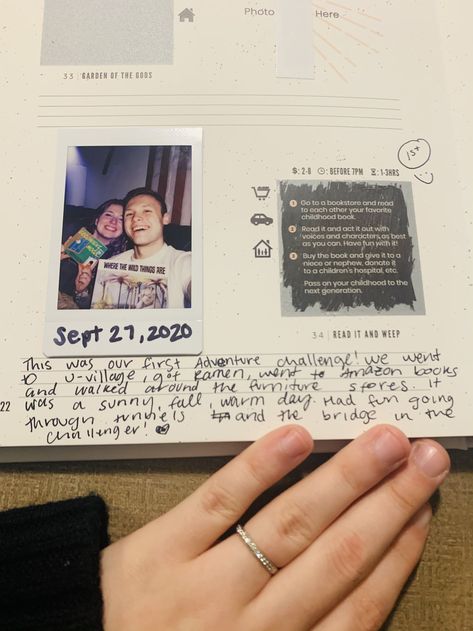 Photo Here
33 | GARDEN OF THE GODS
1st
$: 2-8 : BEFORE 7PM : 1-3HRS
1 Go to a bookstore and read
to each other your favorite
childhood book.
2 Read it and act it out with
voices and characters, as best
as you can. Have fun with it!
3 Buy the book and give it to a
niece or nephew, donate it
to a children's hospital, etc.
Pass on your childhood to the
next generation.
WHERE THE WILD THINGS ARE
Sept 27, 2020
34 | READ IT AND WEEP
This was our first Adventure challenge! We went
to U-village, got ramen, went to Amazon books
and walked around the furniture stores. It
22
was a sunny, fall, warm day. Had fun going
through tunnels and the bridge in the
challenger!